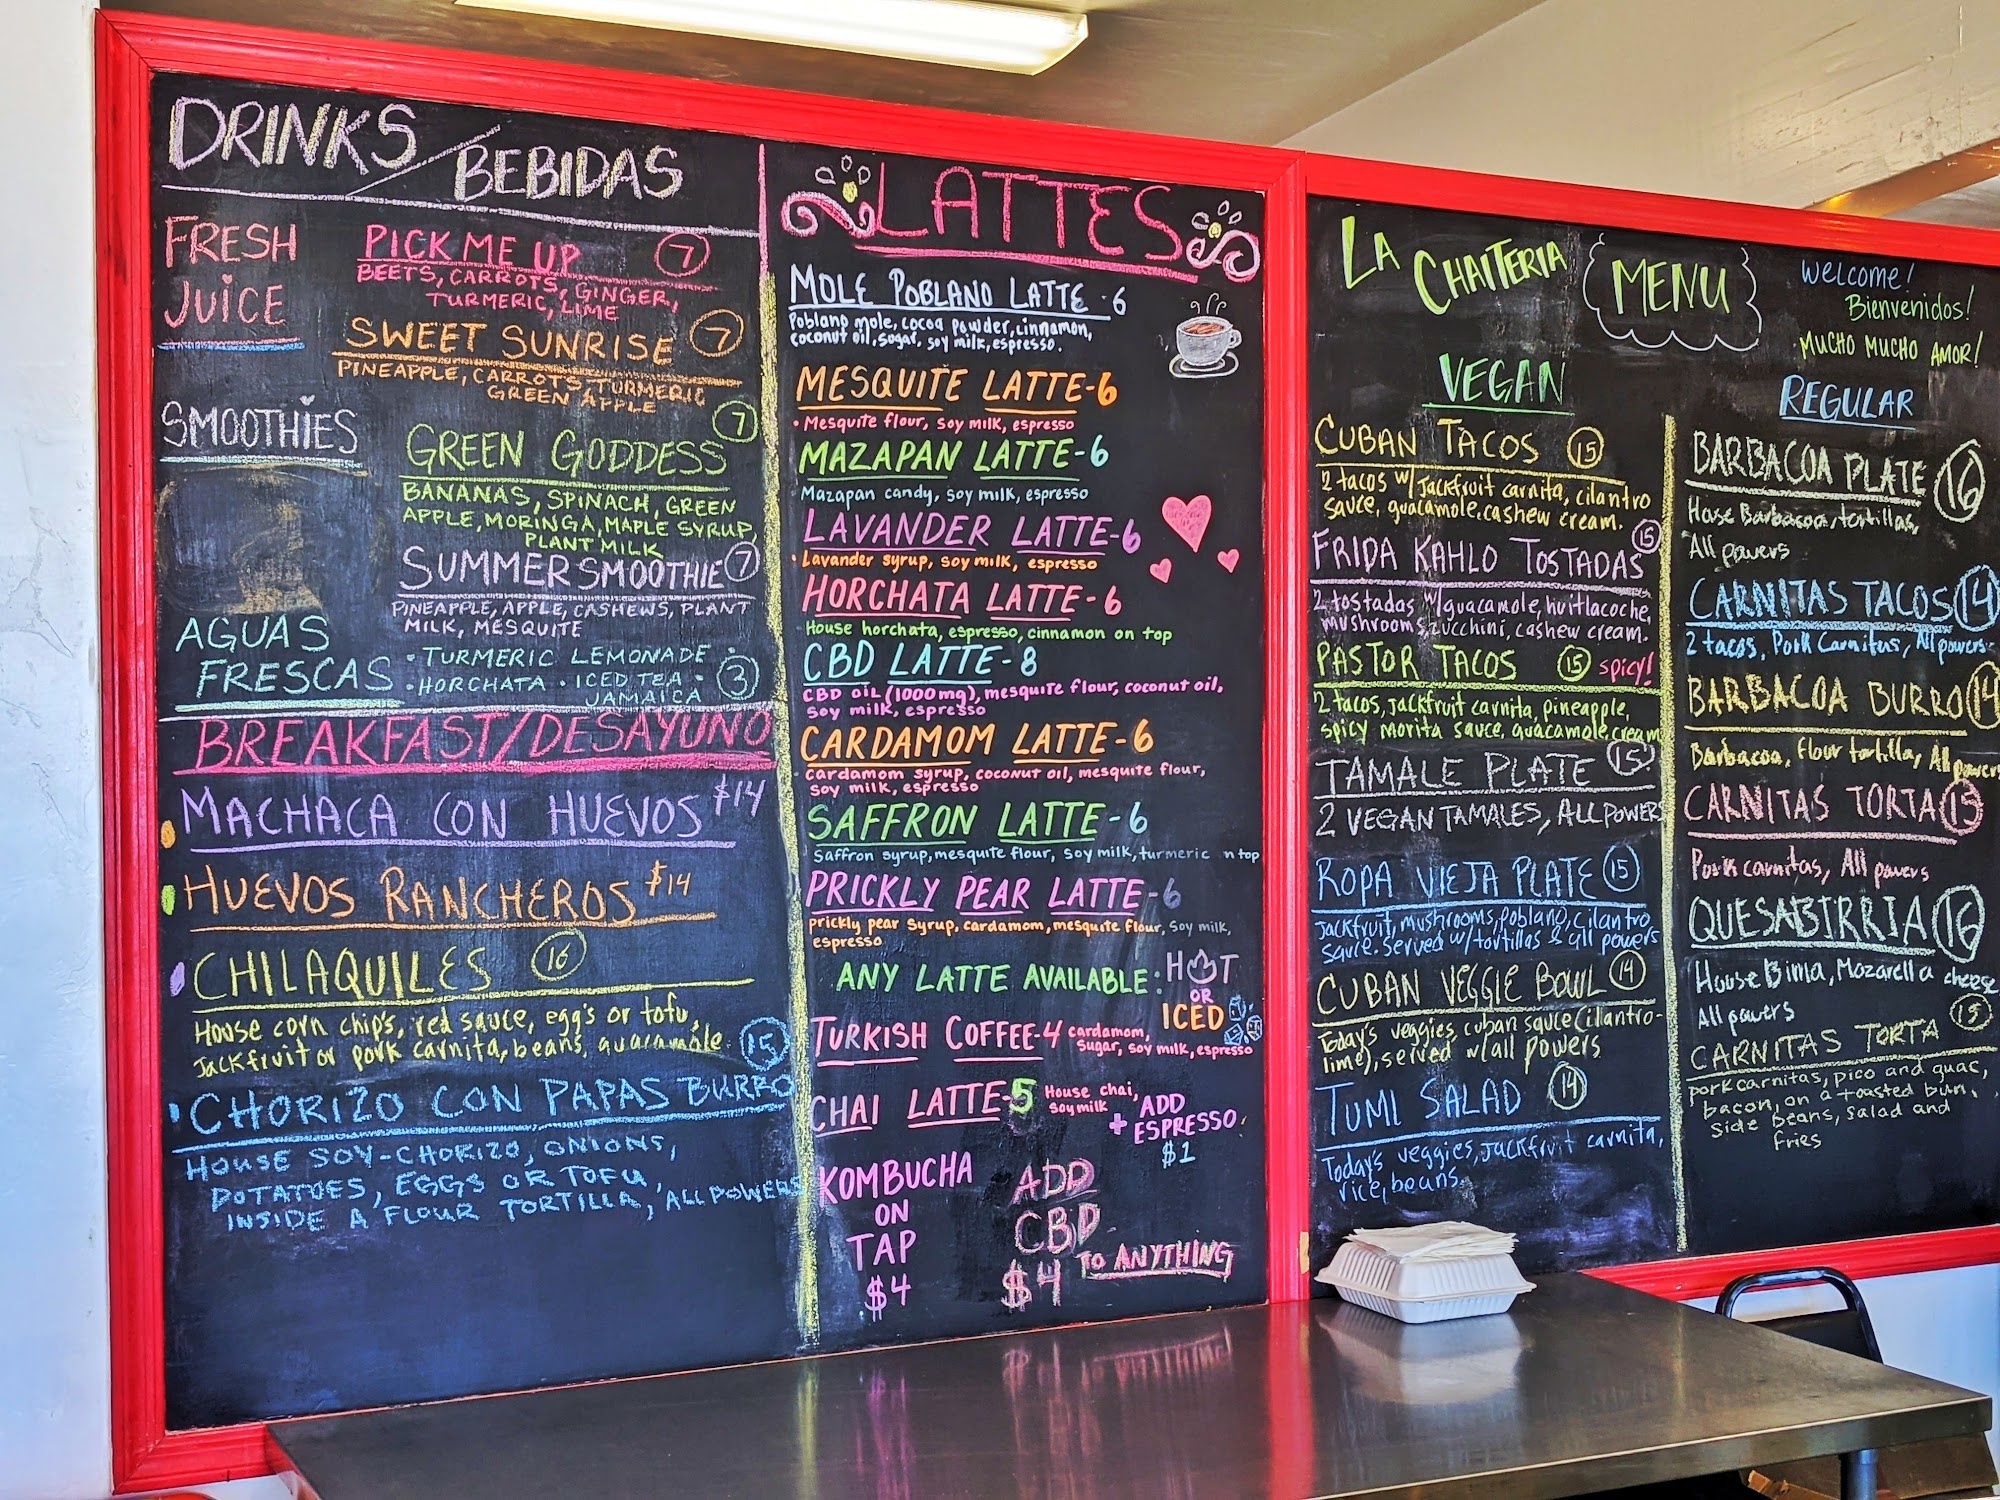 DRINKS / BEBIDAS
FRESH
JUICE
PICK ME UP 7
BEETS, CARROTS, GINGER,
TURMERIC, LIME
SWEET SUNRISE 7
PINEAPPLE, CARROTS, TURMERIC
GREEN APPLE
SMOOTHIES
GREEN GODDESS 7
BANANAS, SPINACH, GREEN
APPLE, MORINGA, MAPLE SYRUP,
PLANT MILK
SUMMER SMOOTHIE 7
PINEAPPLE, APPLE, CASHEWS, PLANT
MILK, MESQUITE
AGUAS
FRESCAS
• TURMERIC LEMONADE •
• HORCHATA • ICED TEA • 3
JAMAICA
BREAKFAST/DESAYUNO
MACHACA CON HUEVOS $14
HUEVOS RANCHEROS $14
CHILAQUILES 16
House corn chip's, red sauce, egg's or tofu,
Jackfruit or pork carnita, beans, guacamole.
CHORIZO CON PAPAS BURRO 15
HOUSE SOY-CHORIZO, ONIONS,
POTATOES, EGGS OR TOFU,
INSIDE A FLOUR TORTILLA, ALL POWERS
LATTES
MOLE POBLANO LATTE - 6
Poblano mole, cocoa powder, cinnamon,
coconut oil, sugar, soy milk, espresso.
MESQUITE LATTE - 6
• Mesquite flour, soy milk, espresso
MAZAPAN LATTE - 6
Mazapan candy, soy milk, espresso
LAVANDER LATTE - 6
• Lavander syrup, soy milk, espresso
HORCHATA LATTE - 6
House horchata, espresso, cinnamon on top
CBD LATTE - 8
CBD oil (1000mg), mesquite flour, coconut oil,
soy milk, espresso
CARDAMOM LATTE - 6
Cardamom syrup, coconut oil, mesquite flour,
soy milk, espresso
SAFFRON LATTE - 6
Saffron syrup, mesquite flour, soy milk, turmeric n top
PRICKLY PEAR LATTE - 6
prickly pear syrup, cardamom, mesquite flour, soy milk,
espresso
ANY LATTE AVAILABLE: HOT
OR
ICED
TURKISH COFFEE - 4 cardamom,
sugar, soy milk, espresso
CHAI LATTE - 5 House chai,
soy milk
+ ADD
ESPRESSO
$1
KOMBUCHA
ON
TAP
$4
ADD
CBD
$4 TO ANYTHING
LA CHAITERIA
MENU
Welcome!
Bienvenidos!
MUCHO MUCHO AMOR!
VEGAN
CUBAN TACOS 15
2 tacos w/ Jackfruit carnita, cilantro
sauce, guacamole, cashew cream.
FRIDA KAHLO TOSTADAS 15
2 tostadas w/guacamole, huitlacoche,
mushrooms, zucchini, cashew cream.
PASTOR TACOS 15 spicy!
2 tacos, jackfruit carnita, pineapple,
spicy morita sauce, guacamole, cream
TAMALE PLATE 15
2 VEGAN TAMALES, ALL POWERS
ROPA VIEJA PLATE 15
Jackfruit, mushrooms, poblano, cilantro
sauce. Served w/ tortillas & all powers
CUBAN VEGGIE BOWL 14
Today's veggies, cuban sauce (cilantro-
lime), served w/ all powers
TUMI SALAD 14
Today's veggies, jackfruit carnita,
rice, beans.
REGULAR
BARBACOA PLATE 16
House Barbacoa, tortillas,
All powers
CARNITAS TACOS 14
2 tacos, Pork Carnitas, All powers
BARBACOA BURRO 14
Barbacoa, flour tortilla, All powers
CARNITAS TORTA 15
Pork carnitas, All powers
QUESABIRRIA 16
House Birria, Mozarella cheese
All powers
CARNITAS TORTA 15
pork carnitas, pico and guac,
bacon, on a toasted bun,
side beans, salad and
fries